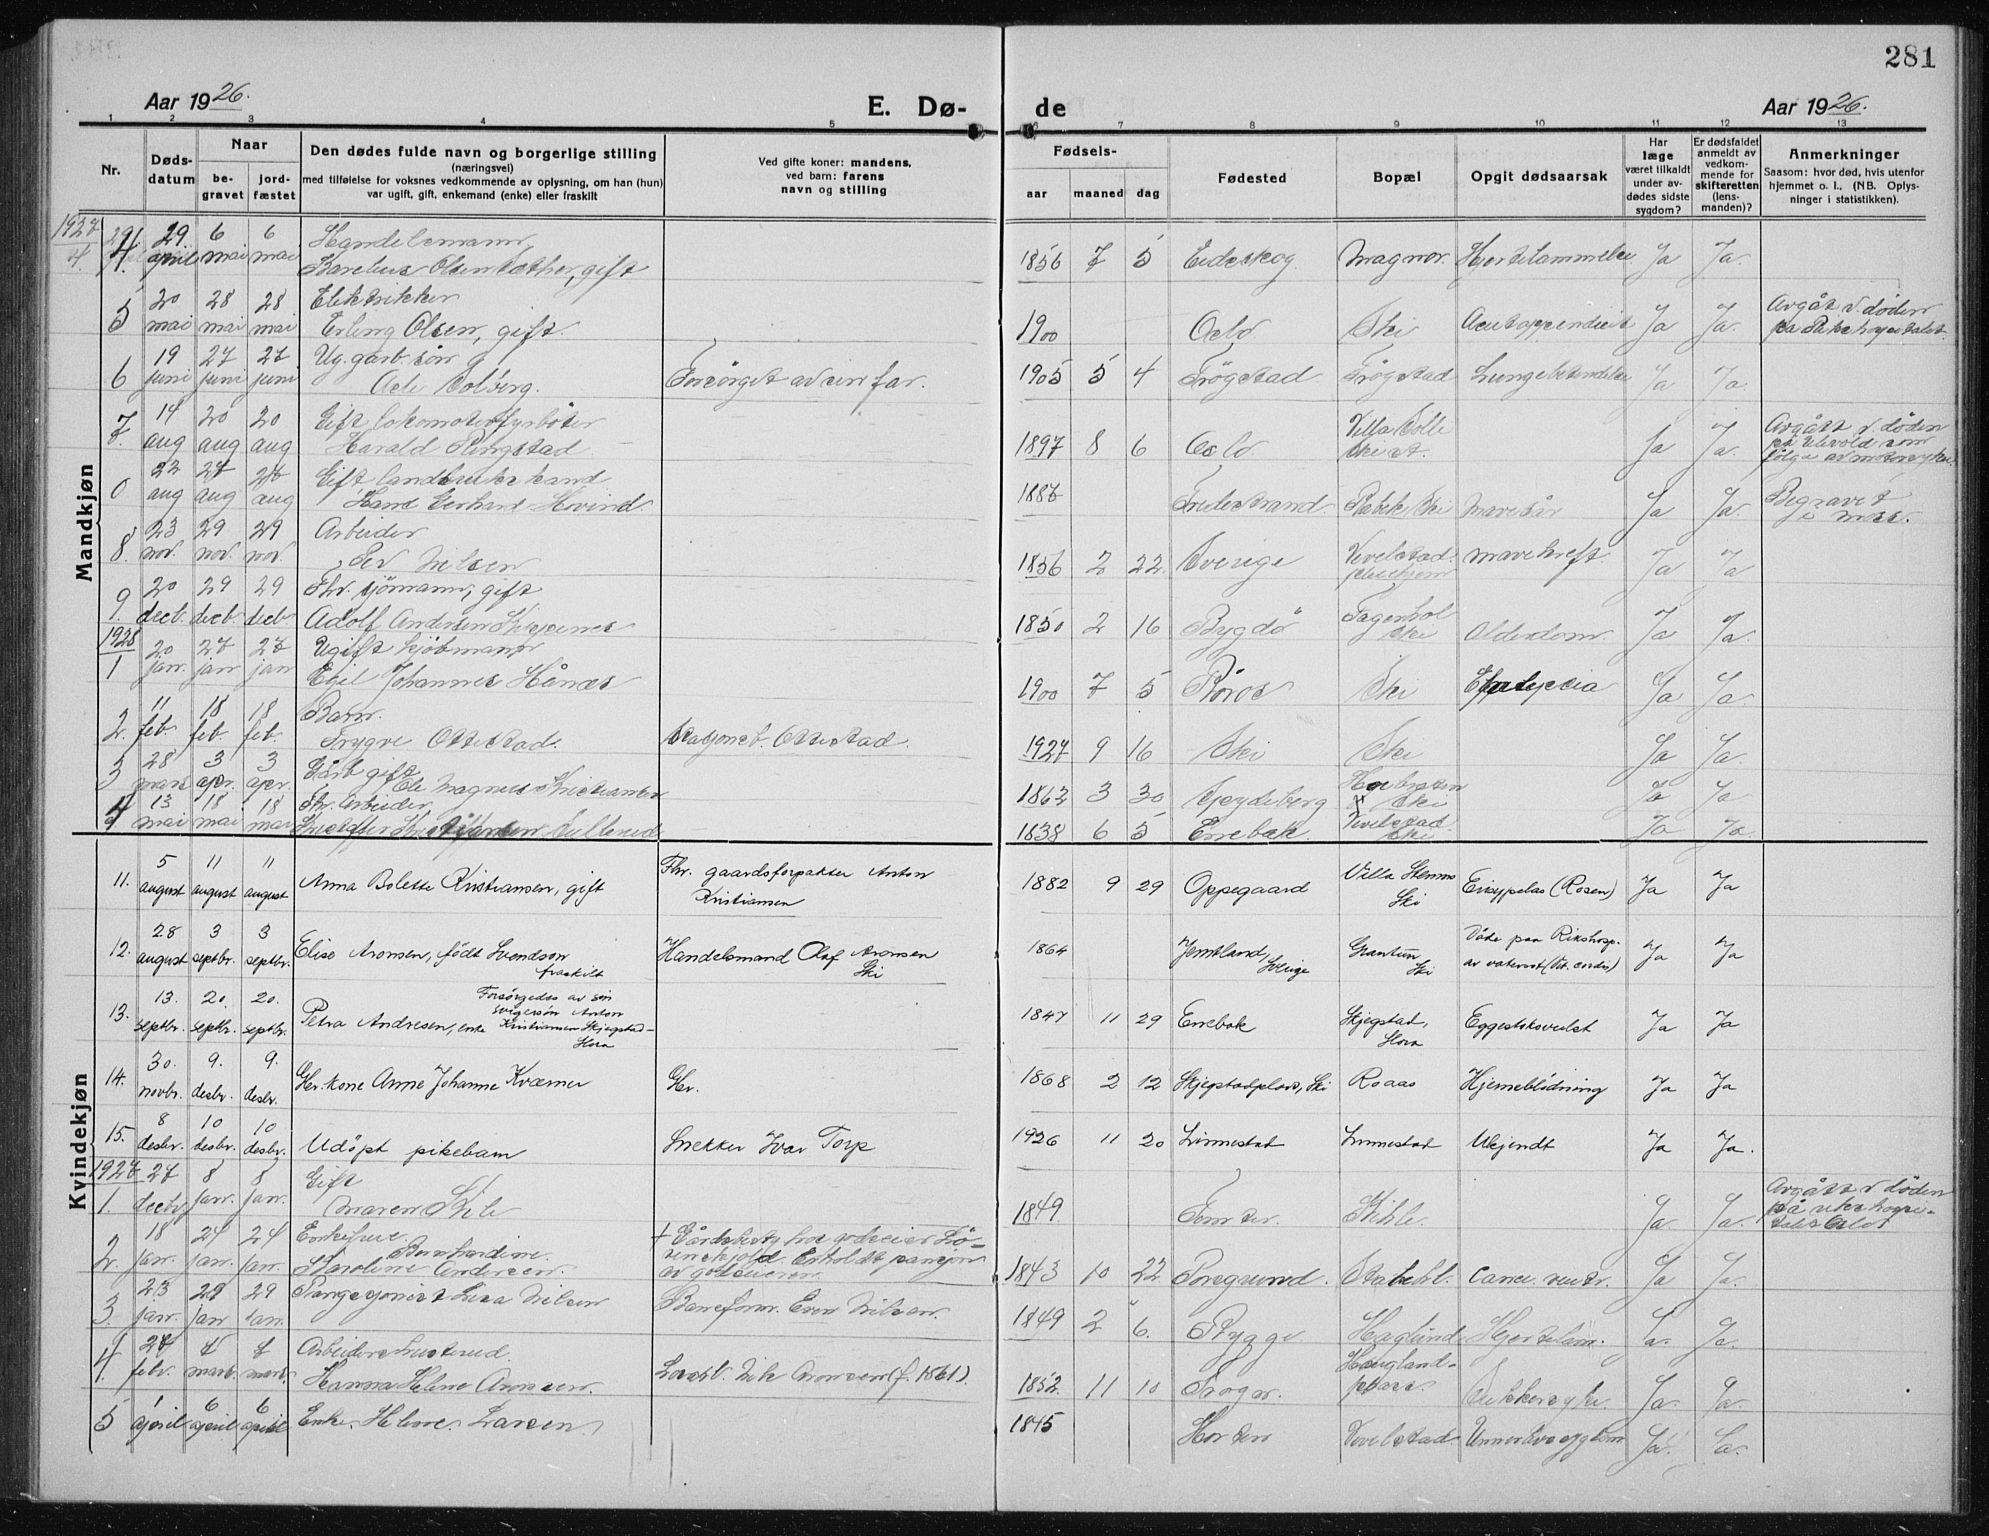 281
Aar 1926.
E. Dø-
de
Aar 1926.
1 2 3 4 5 6 7 8 9 10 11 12 13
Nr.
Døds-
datum
Naar
be-
gravet
jord-
fæstet
Den dødes fulde navn og borgerlige stilling
(næringsvei)
med tilføielse for voksnes vedkommende av oplysning, om han (hun)
var ugift, gift, enkemand (enke) eller fraskilt
Ved gifte koner: mandens,
ved barn: farens
navn og stilling
Fødsels-
aar
maaned
dag
Fødested
Bopæl
Opgit dødsaarsak
Har
læge
været tilkaldt
under av-
dødes sidste
sygdom?
Er dødsfaldet
anmeldt av
vedkom-
mende for
skifteretten
(lens-
manden)?
Anmerkninger
Saasom: hvor død, hvis utenfor
hjemmet o. l., (NB. Oplys-
ninger i statistikken).
Mandkjøn
1927
4. 29 april 6 mai 6 mai Handelsmann,
gift 1856 7 5 Eidskog Magnor Ja Ja.
5 20 mai 28 mai 28 mai Elektriker
Erling Olsen, gift. 1900 Oslo Ski Acut appendicit Ja Ja. Avgått v døden
på Rikshospitalet
6 19 juni 27 juni 27 juni Ug. garb. søn
Solberg. Forsörget av sin far. 1905 5 4 Trögstad Trögstad Lungebetendelse Ja Ja.
7. 14 aug 20 aug 20 aug Gift lokomotivfyrböter
Harald Ringstad 1897 8 6 Oslo Villa Solli
Ski st. Ja Ja. Avgått v døden
på Ulevold som
fölge av
0 22 aug 27 aug 27 aug Gift landbrukskand.
Hans Gerhard Hovind 1887 Ski Mavesår Ja Ja. Begravet
i Moss.
8. 23 nov. 29 nov. 29 nov. Arbeider
Per Nilsen 1856 2 22. Sverige Vevelstad
pleiehjem mavekreft. Ja Ja
9. 20 decb. 29 decb 29 decb Fhv. sjömann, gift
Adolf Andersen 1850 2 16 Bygdö Ski Alderdom Ja Ja.
1928
1 20 jan. 27 jan 27 jan Ugift kjöbmann
Egil Johannes Hånes 1900 7 5 Röros Ski Ja Ja.
2. 11 feb. 18 feb. 18 feb. Barn.
Trygve Ottestad. Ottestad. 1927 9 16 Ski Ski Ja Ja.
3 28 mars 3 apr. 3 apr. Gårb gift
Ole Magnus Kristiansen 1862 3 30 Spydeberg Ski Ja Ja
4 13 mai 18 mai 18 mai Fhv. Arbeider,
1838 6 5 Enebak Vevelstad
Ski Ja Ja.
Kvindekjøn
11. 5 august 11 august 11 august Anna Bolette Kristiansen, gift Fhv. gaardsforpakter Anton
Kristiansen 1882 9 29 Oppegaard Villa Stenmo
Ski Erisypelas (Rosen) Ja Ja
12. 28 august 3 septbr. 3 septbr. Elise Aronsen, født Svendsen
fraskilt Handelsmand Olaf Aronsen
Ski 1864 Jemtland,
Sverige Grantun
Ski Døde paa Rikshosp.
(Vit. cordis) Ja Ja
13. 13. septbr. 20. septbr. 20. septbr. Petra Andresen, enke Forsørgedes av sin
svigersøn Anton
Kristiansen Skjegstad-
Hora 1847 11 29 Enebak Skjegstad,
Hora Eggestoksvulst Ja Ja
14. 30. novbr. 9. desbr. 9. desbr. Gbr. kone Anne Johanne Kværner Gbr. 1868 2 12 Skjegstadplass, Ski Roaas Hjerneblødning Ja Ja
15. 8 desbr. 10 desbr. 10 desbr. Udöpt pikebarn Snekker Ivar Torp 1926 11 20 Linnestad Linnestad Ukjendt Ja Ja.
1927
1. 27 decbr 8 jan. 8 jan. Gift
Maren Kile 1849. Ja Ja. Avgått v döden
på
Oslo
2. 18 jan. 24 jan. 24 jan. Enkefrue
Bernhardine
Karoline Andersen. 1843 10 22 Porsgrund. Ja Ja.
3. 23 jan. 29 jan 29 jan. Pensjonist Lisa Nilsen Baneform. Even Nilsen. 1849 2 6. Rygge Haglund Ja. Ja.
4. 27 febr. 4 mars. 4 mars. Arbeiders hustru
Hanna Helene Aronsen. Aronsen (f. 1861). 1852 11 10 Haugland-
plass. Sukkersyke. Ja. Ja.
5 1 april 6 april 6 april Enke Helene Larsen 1845 Horten Vevelstad Ja. Ja.